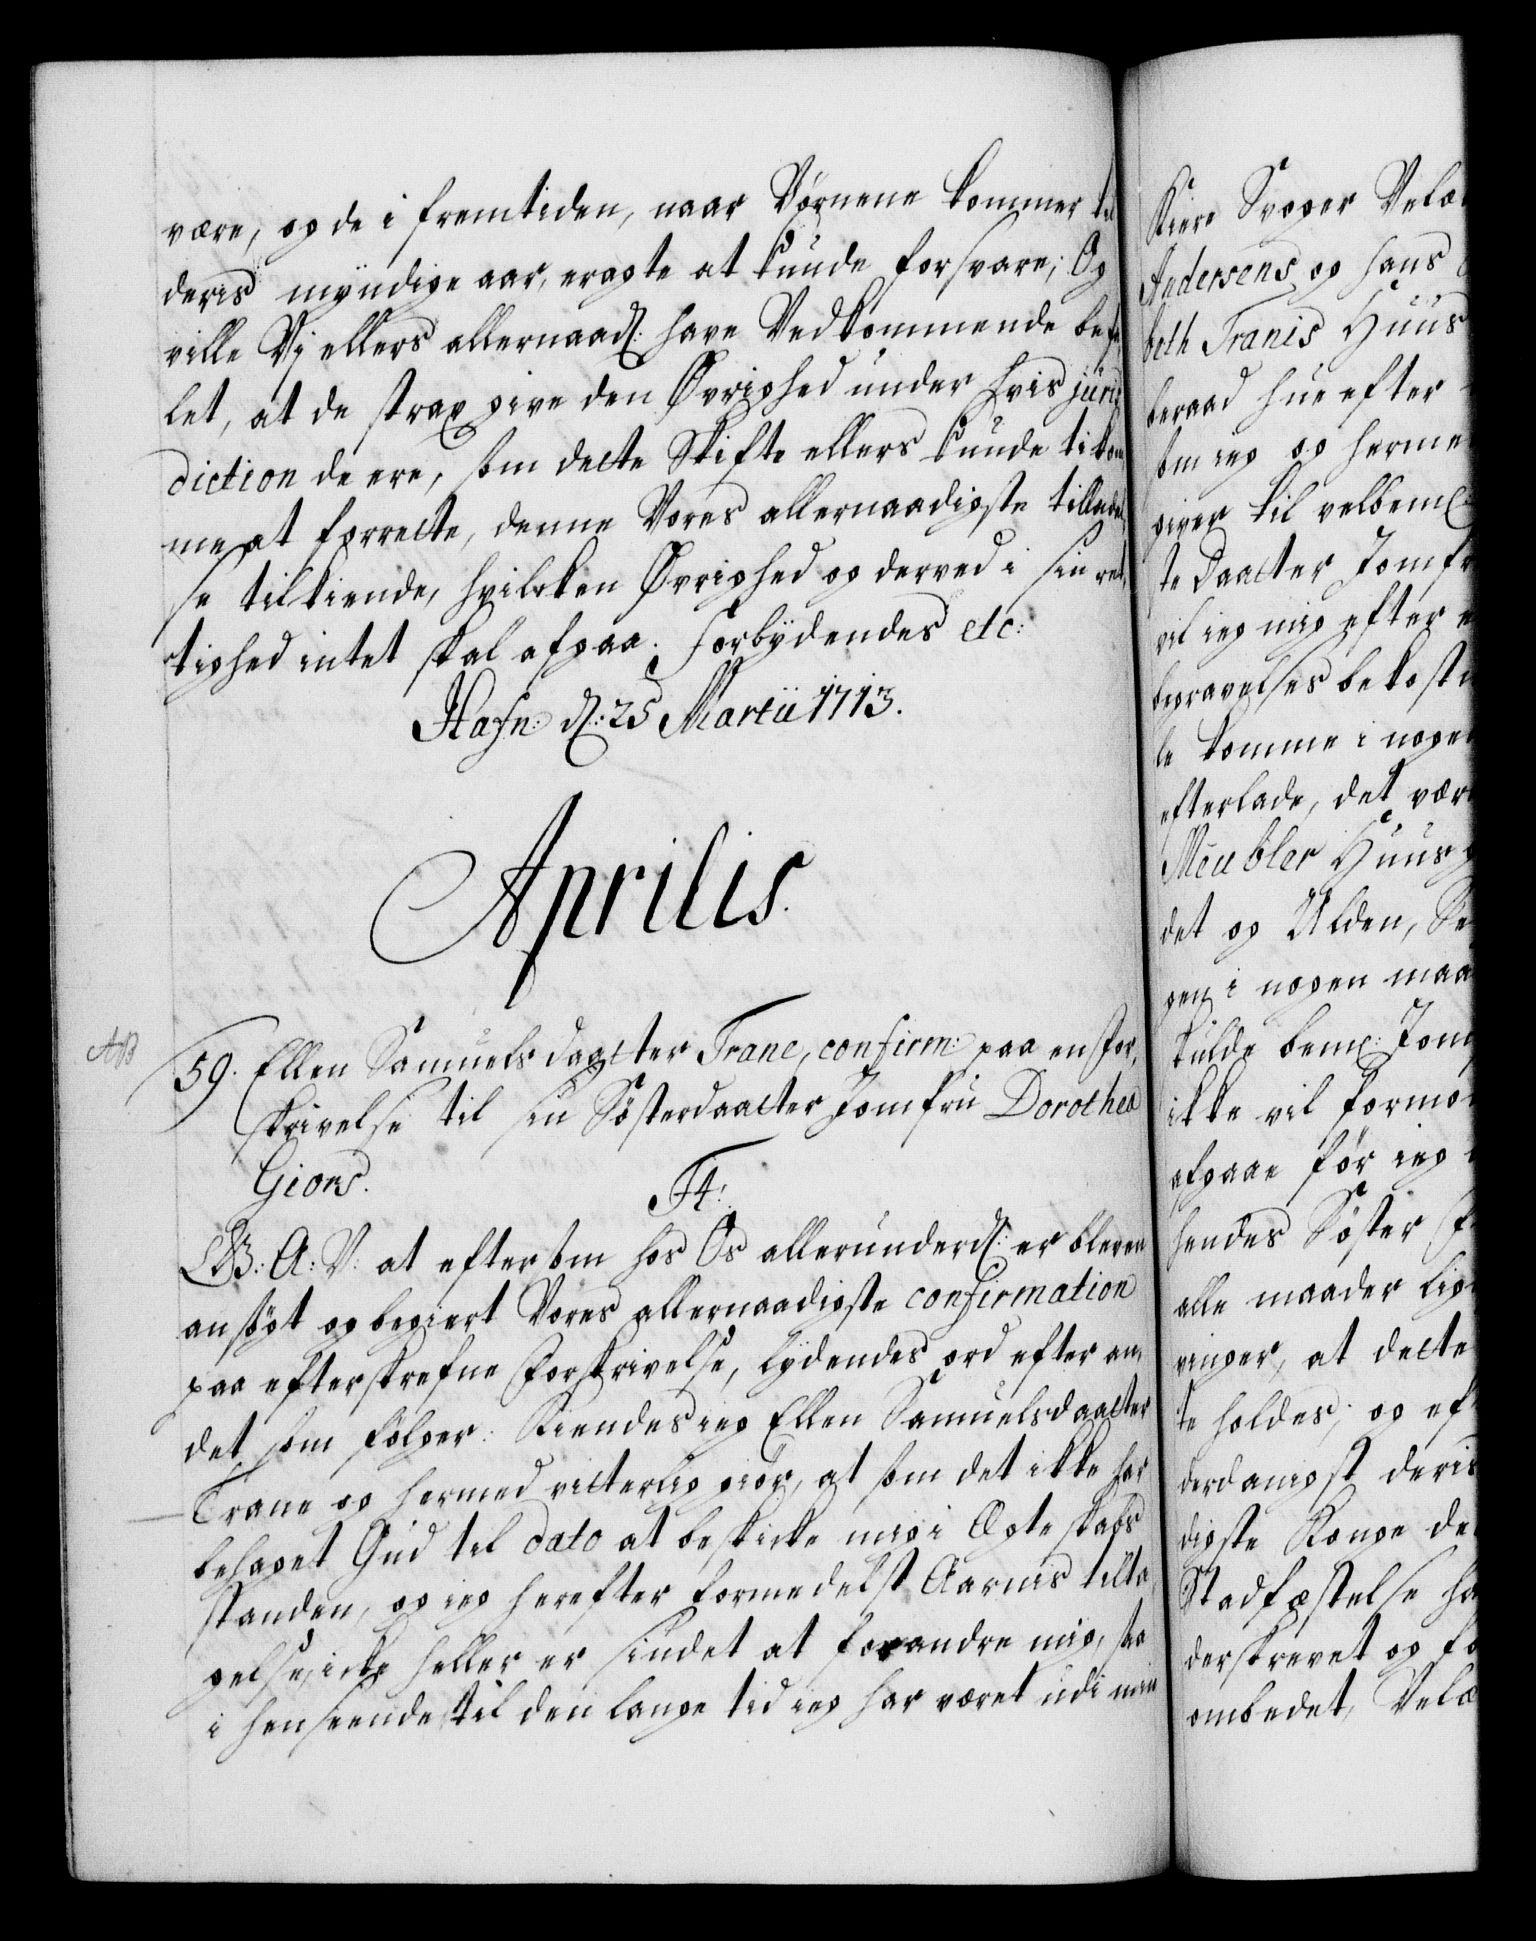 være, og de i fremtiden, naar Børnene kommer til
deris myndige aar, eragte at kunde forsvare; Og
ville Vi ellers allernaad: have Vedkommende befa
let, at de strax give den Øvrighed under hvis juris
diction de ere, som dette Skifte ellers kunde tilkom
me at forrette, denne Vores allernaadigste tilladel
se tilkiende, hvilcken Øvrighed og derved i sin ret
tighed intet skal afgaa. Forbydendes etc:
Hafn: d: 25 Martii 1713.
Aprilis.
AB
59. Ellen Samuelsdaatter Trane, confirm: paa en for,
skrivelse til sin Søsterdaatter Jomfru Dorothea
Giors.
F4.
G. A. V. at eftersom hos Os allerunderd: er bleven
ansøgt og begiert Vores allernaadigste confirmation
paa efterskrefne forskrivelse, lydendes ord efter an,
det som følger: Kiendes ieg Ellen Samuelsdaatter
Trane og hermed vitterlig giør, at som det ikke har
behaget Gud til dato at beskicke mig i Ægteskabs
standen, og ieg herefter formedelst Aarnis tilta
gelse, icke heller er sindet at forandre mig, saa
i henseende til den lange tid ieg har været udi min
Kiere Svoger Velæ
Andersens og hans
beth Tranis Huus
beraad hue efter
som ieg og herme
giver til velbemt:
te Daatter Jomfr
vil ieg mig efter
begravelses bekost
le komme i noget
efterlade, det vær
Meubler Huus g
det og Ulden, Se
gen i nogen maa
skulde bemt: Jom
ikke vil formo
afgaae før ieg
hendes Søster
alle maader lig
vinger, at dette
te holdes; og ef
derdanigst deris
digste Konge de
Stadfæstelse ha
derskrevet og fo
ombedet, Velæ